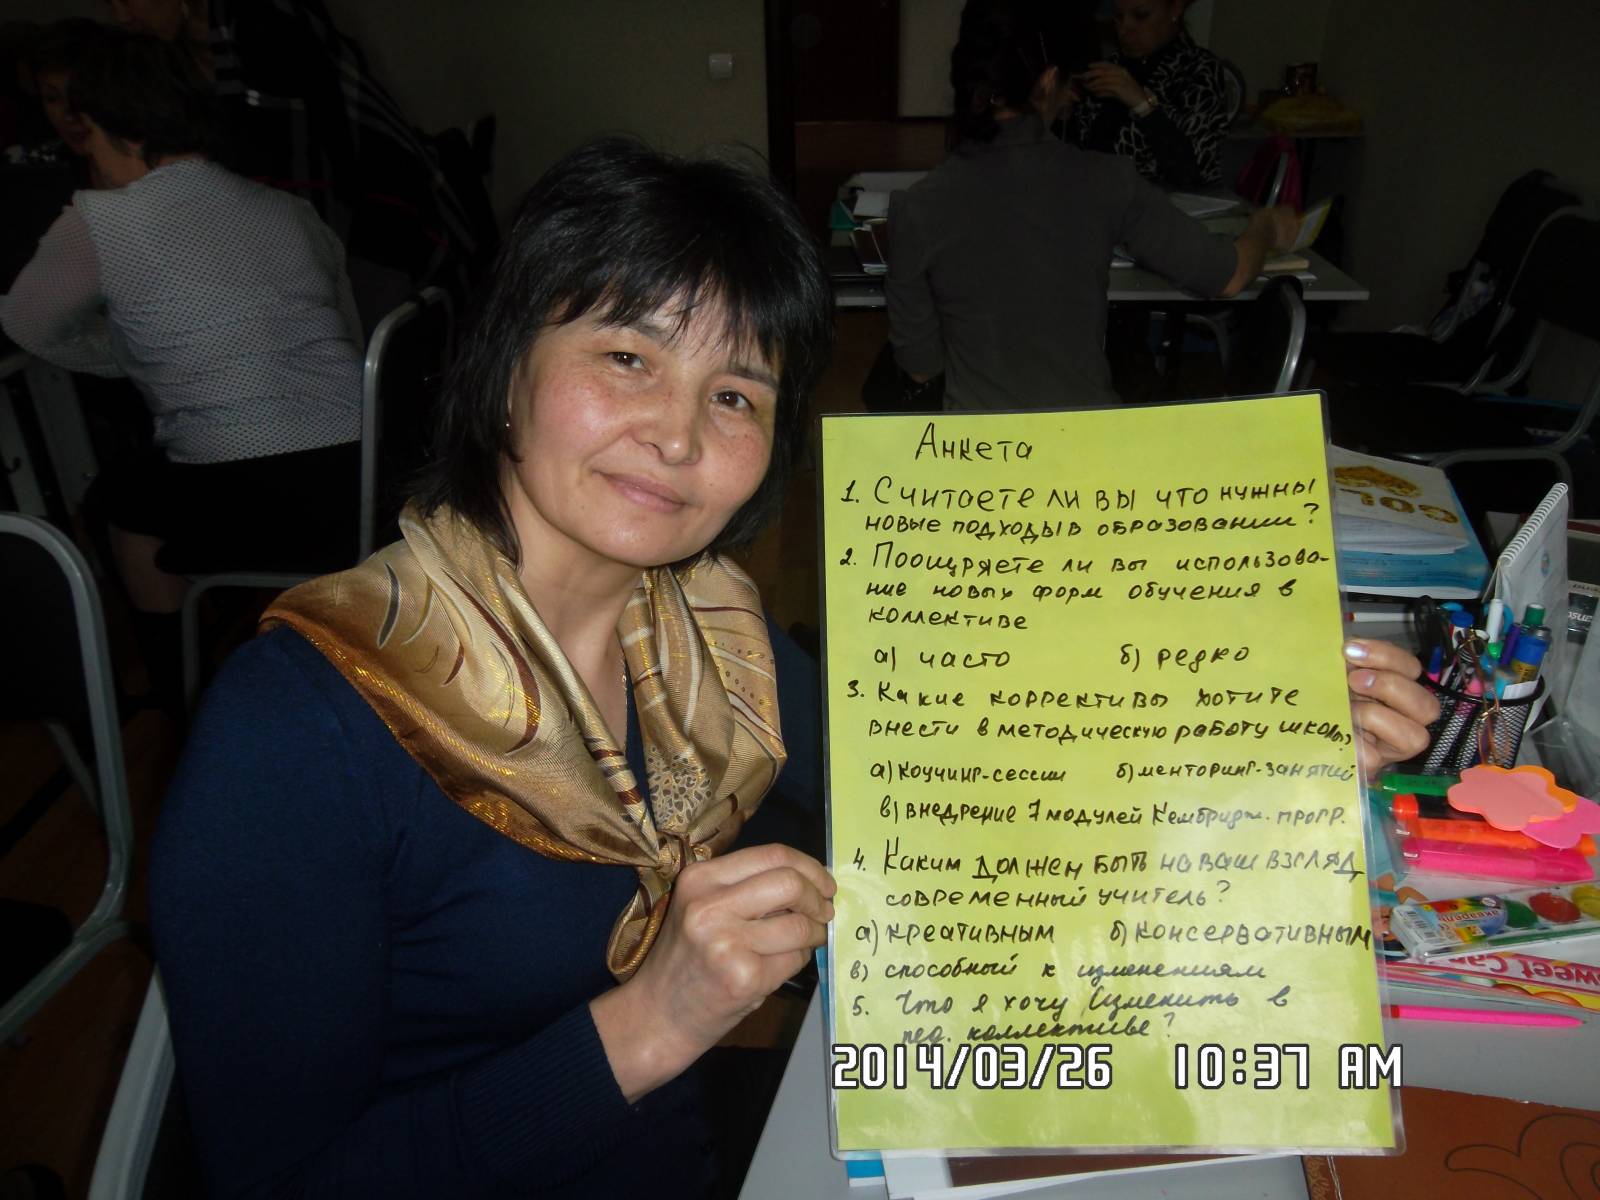 Анкета
1. Считаете ли вы что нужны
новые подходы в образовании?
2. Поощряете ли вы использова-
ние новых форм обучения в
коллективе
а) часто б) редко
3. Какие коррективы хотите
внести в методическую работу школы?
а) коучинг-сессии б) менторинг-занятий
в) внедрение 7 модулей Кембридж. прогр.
4. Каким должен быть на ваш взгляд
современный учитель?
а) креативным б) консервативным
в) способный к изменениям
5. Что я хочу изменить в
пед. коллективе?
2014/03/26 10:37 AM
GOL
акварель
Sweet Ca